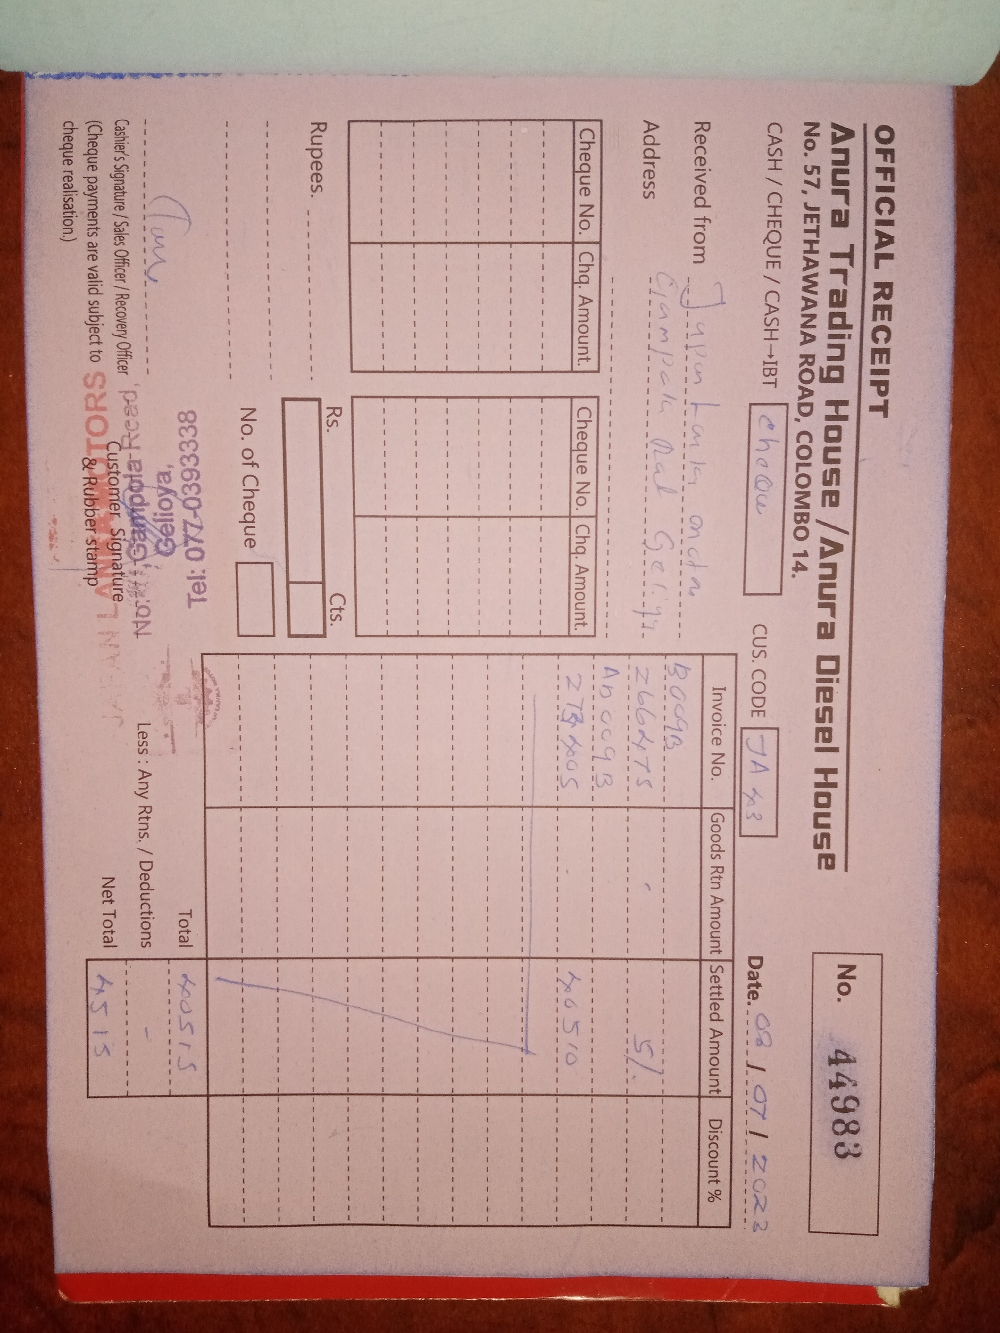 OFFICIAL RECEIPT
Anura Trading House / Anura Diesel House
No. 57, JETHAWANA ROAD, COLOMBO 14.
No. 44983
CASH / CHEQUE / CASH→IBT cheque
CUS. CODE JA 43
Date. 08 / 07 / 2023
Received from Japan Lanka
Address Gampola Rd
Cheque No. Chq. Amount. Cheque No. Chq. Amount.
Invoice No. Goods Rtn Amount Settled Amount Discount %
B009B
266475 5/.
AB009B
40510
Rupees.
Rs. Cts.
No. of Cheque
Total 40515
Less : Any Rtns. / Deductions -
Net Total 4515
Cashier's Signature / Sales Officer / Recovery Officer
(Cheque payments are valid subject to
cheque realisation.)
Customer Signature
& Rubber stamp
LANKA MOTORS
No. Gampola Road,
Gelioya,
Tel: 077-0393338